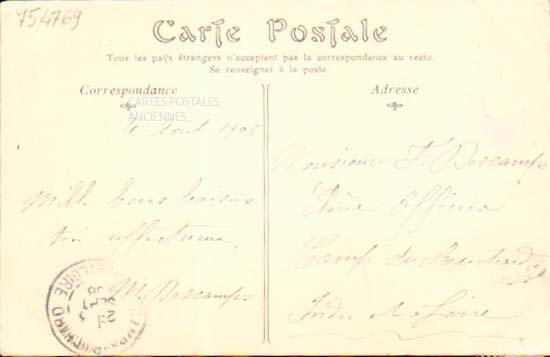 754769
Carte Postale
Tous les pays étrangers n'acceptent pas la correspondance au recto.
Se renseigner à la poste.
Correspondance
CARTES POSTALES
ANCIENNES
Août 1905
Mille bons baisers
affectueux
M. Descamps
Adresse
Monsieur F. Descamps
Élève Officier
Camp du Ruchard
Indre et Loire